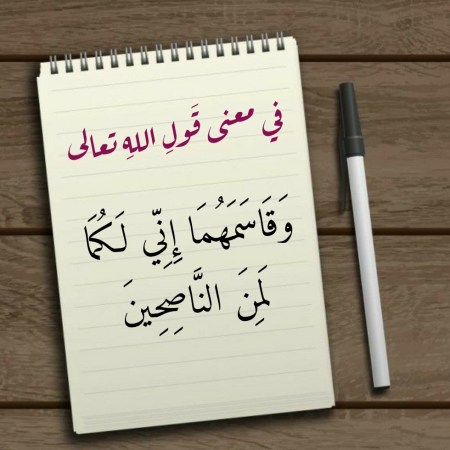 في معنى قَولِ اللهِ تعالى
وَقَاسَمَهُمَا إِنِّي لَكُمَا
لَمِنَ النَّاصِحِينَ